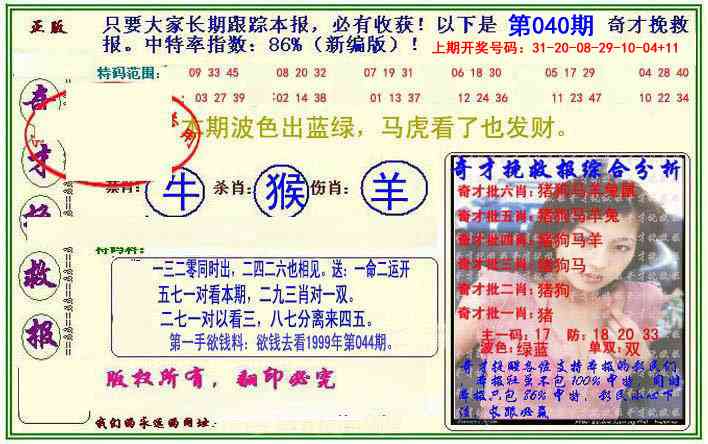 正版
只要大家长期跟踪本报，必有收获！以下是 第040期 奇才挽救
报。中特率指数：86%（新编版）！ 上期开奖号码：31-20-08-29-10-04+11
特码范围：
09 33 45 08 20 32 07 19 31 06 18 30 05 17 29 04 28 40
03 27 39 02 14 38 01 13 37 12 24 36 11 23 47 10 22 34
本期波色出蓝绿，马虎看了也发财。
奇才
救报
牛 杀肖：猴 伤肖：羊
一三二零同时出，二四二六也相见。送：一命二运开
五七一对看本期，二九三肖对一双。
二七一对以看三，八七分离来四五。
第一手欲钱料：欲钱去看1999年第044期。
版权所有，翻印必究
我们的永远的网址：
奇才挽救报综合分析
奇才批六肖：猪狗马羊兔鼠
奇才批五肖：猪狗马羊兔
奇才批四肖：猪狗马羊
奇才批三肖：猪狗马
奇才批二肖：猪狗
奇才批一肖：猪
主一码：17 防：18 20 33
波色：绿蓝 单双：双